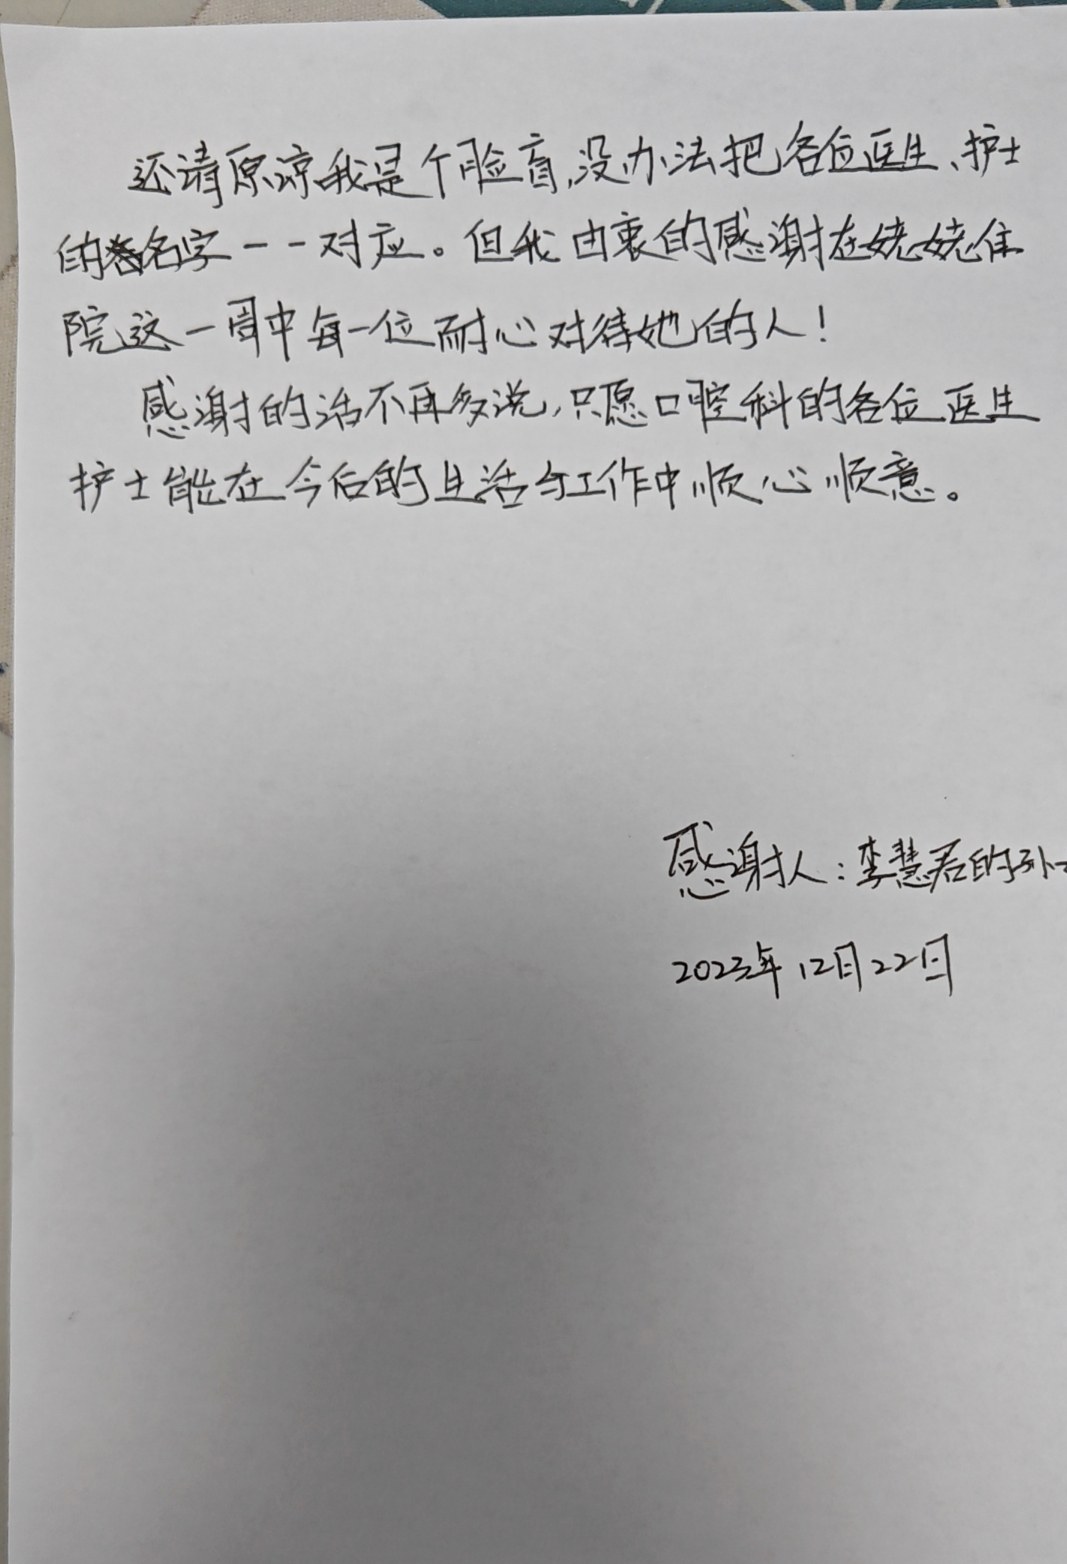 还请原谅我是个脸盲,没办法把各位医生、护士
的名字一一对应。但我由衷的感谢在姥姥住
院这一周中每一位耐心对待她的人!
感谢的话不再多说,只愿口腔科的各位医生
护士能在今后的生活与工作中顺心顺意。
感谢人:李慧君的外
2023年12月22日